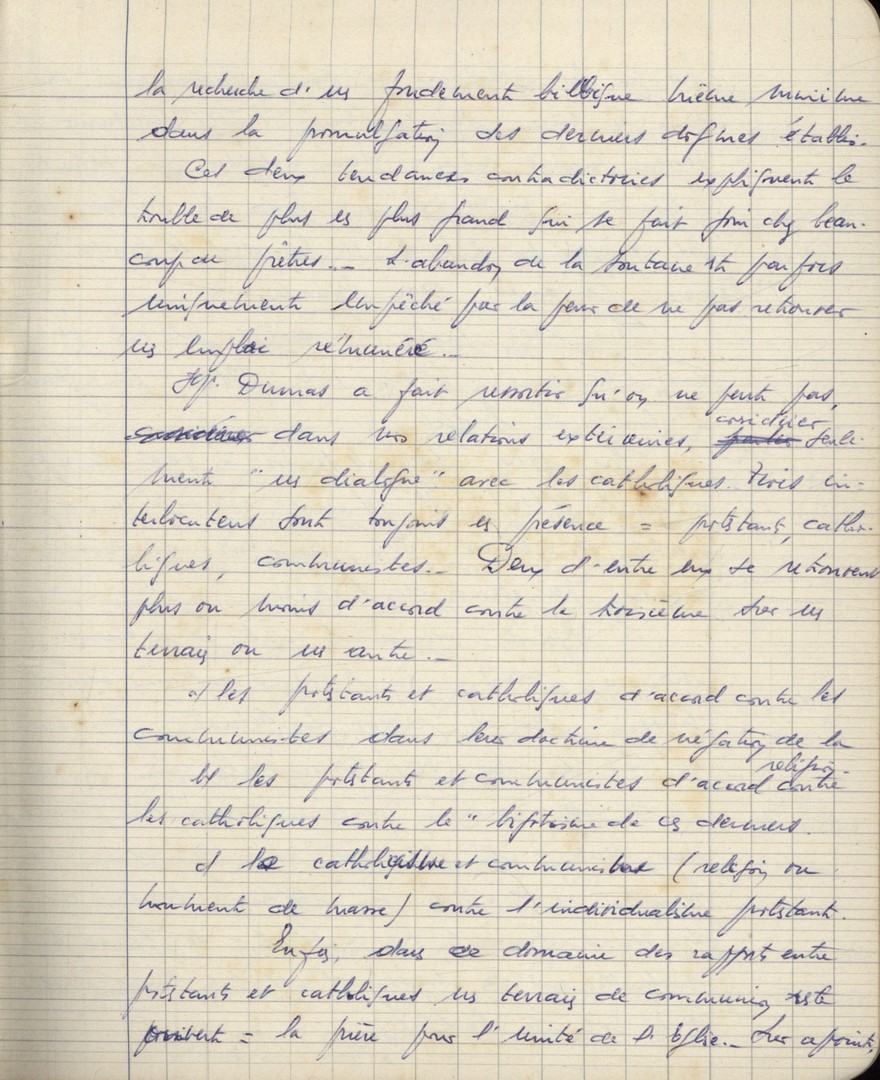 la recherche d'un fondement biblique même minime
dans la promulgation des derniers dogmes établis.
Ces deux tendances contradictoires expliquent le
trouble de plus en plus grand qui se fait jour chez beau-
coup de prêtres... L'abandon de la soutane est parfois
uniquement empêché par la peur de ne pas retrouver
un emploi rémunéré...
Mr. Dumas a fait ressortir qu'on ne peut pas,
dans nos relations extérieures, considérer seule-
ment "un dialogue" avec les catholiques. Trois in-
terlocuteurs sont toujours en présence = protestants, catho-
liques, communistes.. Deux d'entre eux se retrouvent
plus ou moins d'accord contre le troisième sur un
terrain ou un autre._
a/ les protestants et catholiques d'accord contre les
communistes dans leur doctrine de négation de la
religion.
b/ les protestants et communistes d'accord contre
les catholiques contre le "bigotisme de ces derniers.
c/ le catholicisme et communisme (religion ou
mouvement de masse) contre l'individualisme protestant.
Enfin, dans ce domaine des rapports entre
protestants et catholiques un terrain de communion reste
ouvert = la prière pour l'unité de l'Eglise._ Sur ce point,